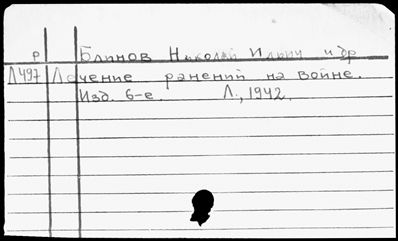 р Блинов Николай Ильич и др
Л497 Лечение ранений на войне.
Изд. 6-е. Л., 1942.